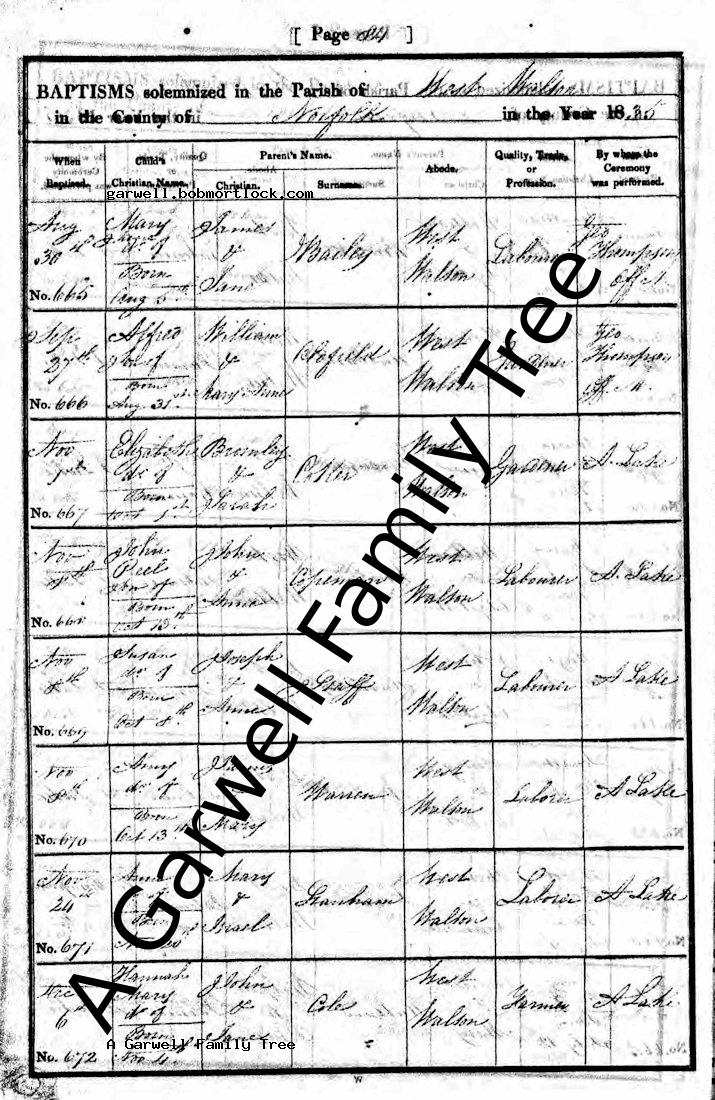 [ Page 84 ]
BAPTISMS solemnized in the Parish of West Walson
in the County of Norfolk in the Year 1835
When Baptized. Child's Christian Name. Parent's Name. Christian. Surname. Abode. Quality, Trade, or Profession. By whom the Ceremony was performed.
garwell.bobmortlock.com
Aug Mary James West Geo
30th dr of & Bailey Labourer Thompson
Born Jane Walson Off M.
No. 665 Aug 5th
Sep Alfred William West Geo
27th Son of & Gardner Thompson
Born Mary Anne Walson off M.
No. 666 Aug 31st
Nov Elizabeth Bromley West
dr of & Coker Gardener A. Lake
Born Sarah Walson
No. 667 Oct 1st
Nov John John West
8th Peel & Copeman Labourer A. Lake
Son of Anne Walson
Born
No. 668 Oct 13th
Nov Susan Joseph West
8th dr of & Graff Labourer A Lake
Born Anne Walson
No. 669 Oct 8th
Nov Amy James West
8th dr of Warren Laborer A Lake
Born Mary Walson
No. 670 Oct 13th
Nov Mary West
24th of & Laborer A Lake
Born Israel Walson
No. 671
Dec Hannah John West
6th Mary & Cole Farmer A Lake
dr of Walson
Born
No. 672 Nov
A Garwell Family Tree
A Garwell Family Tree